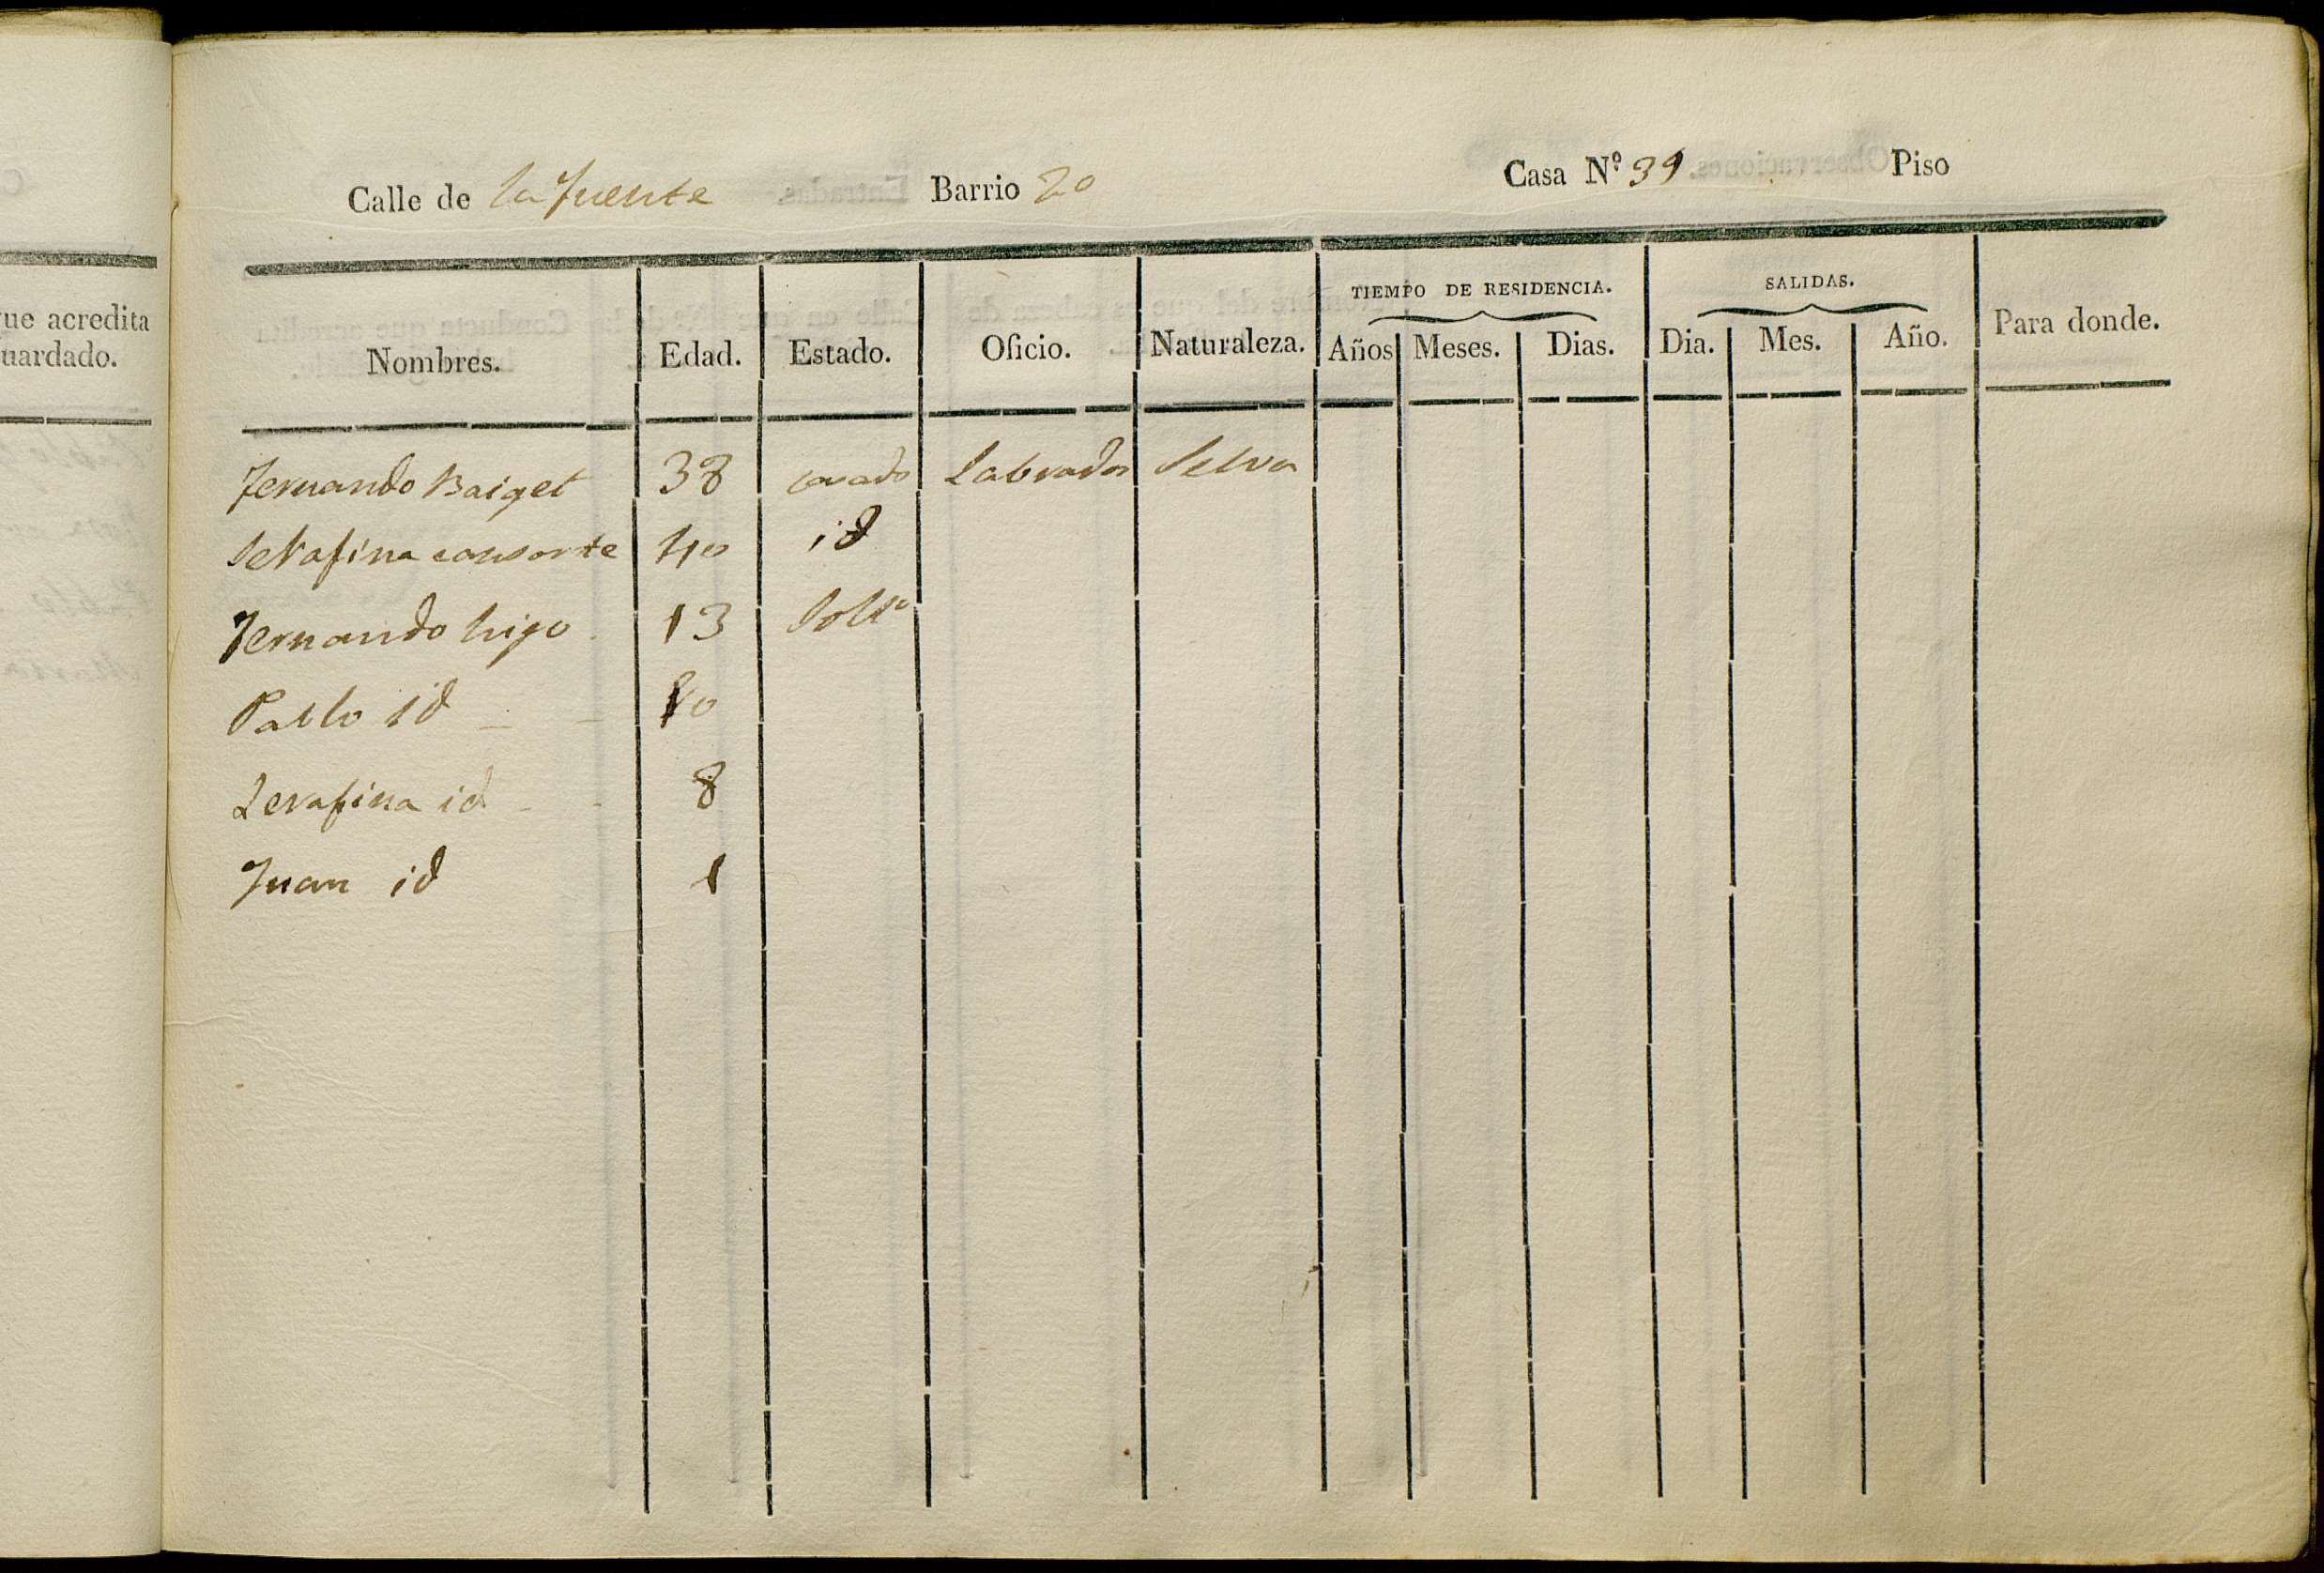 ue acredita
uardado.
Calle de la fuente Barrio 2o Casa N.º 39. Piso
TIEMPO DE RESIDENCIA. SALIDAS.
Nombres. Edad. Estado. Oficio. Naturaleza. Años Meses. Dias. Dia. Mes. Año. Para donde.
Fernando Baiget 38 casado Labrador Selva
Serafina consorte 40 id
Fernando hijo 13 Solto
Pablo id 10
Serafina id 8
Juan id 1